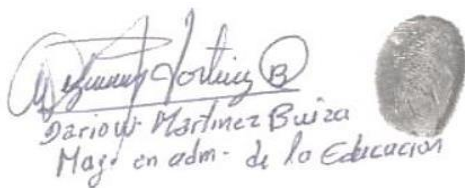 Martinez B
Martinez Buiza
Mag. en adm. de la Educación